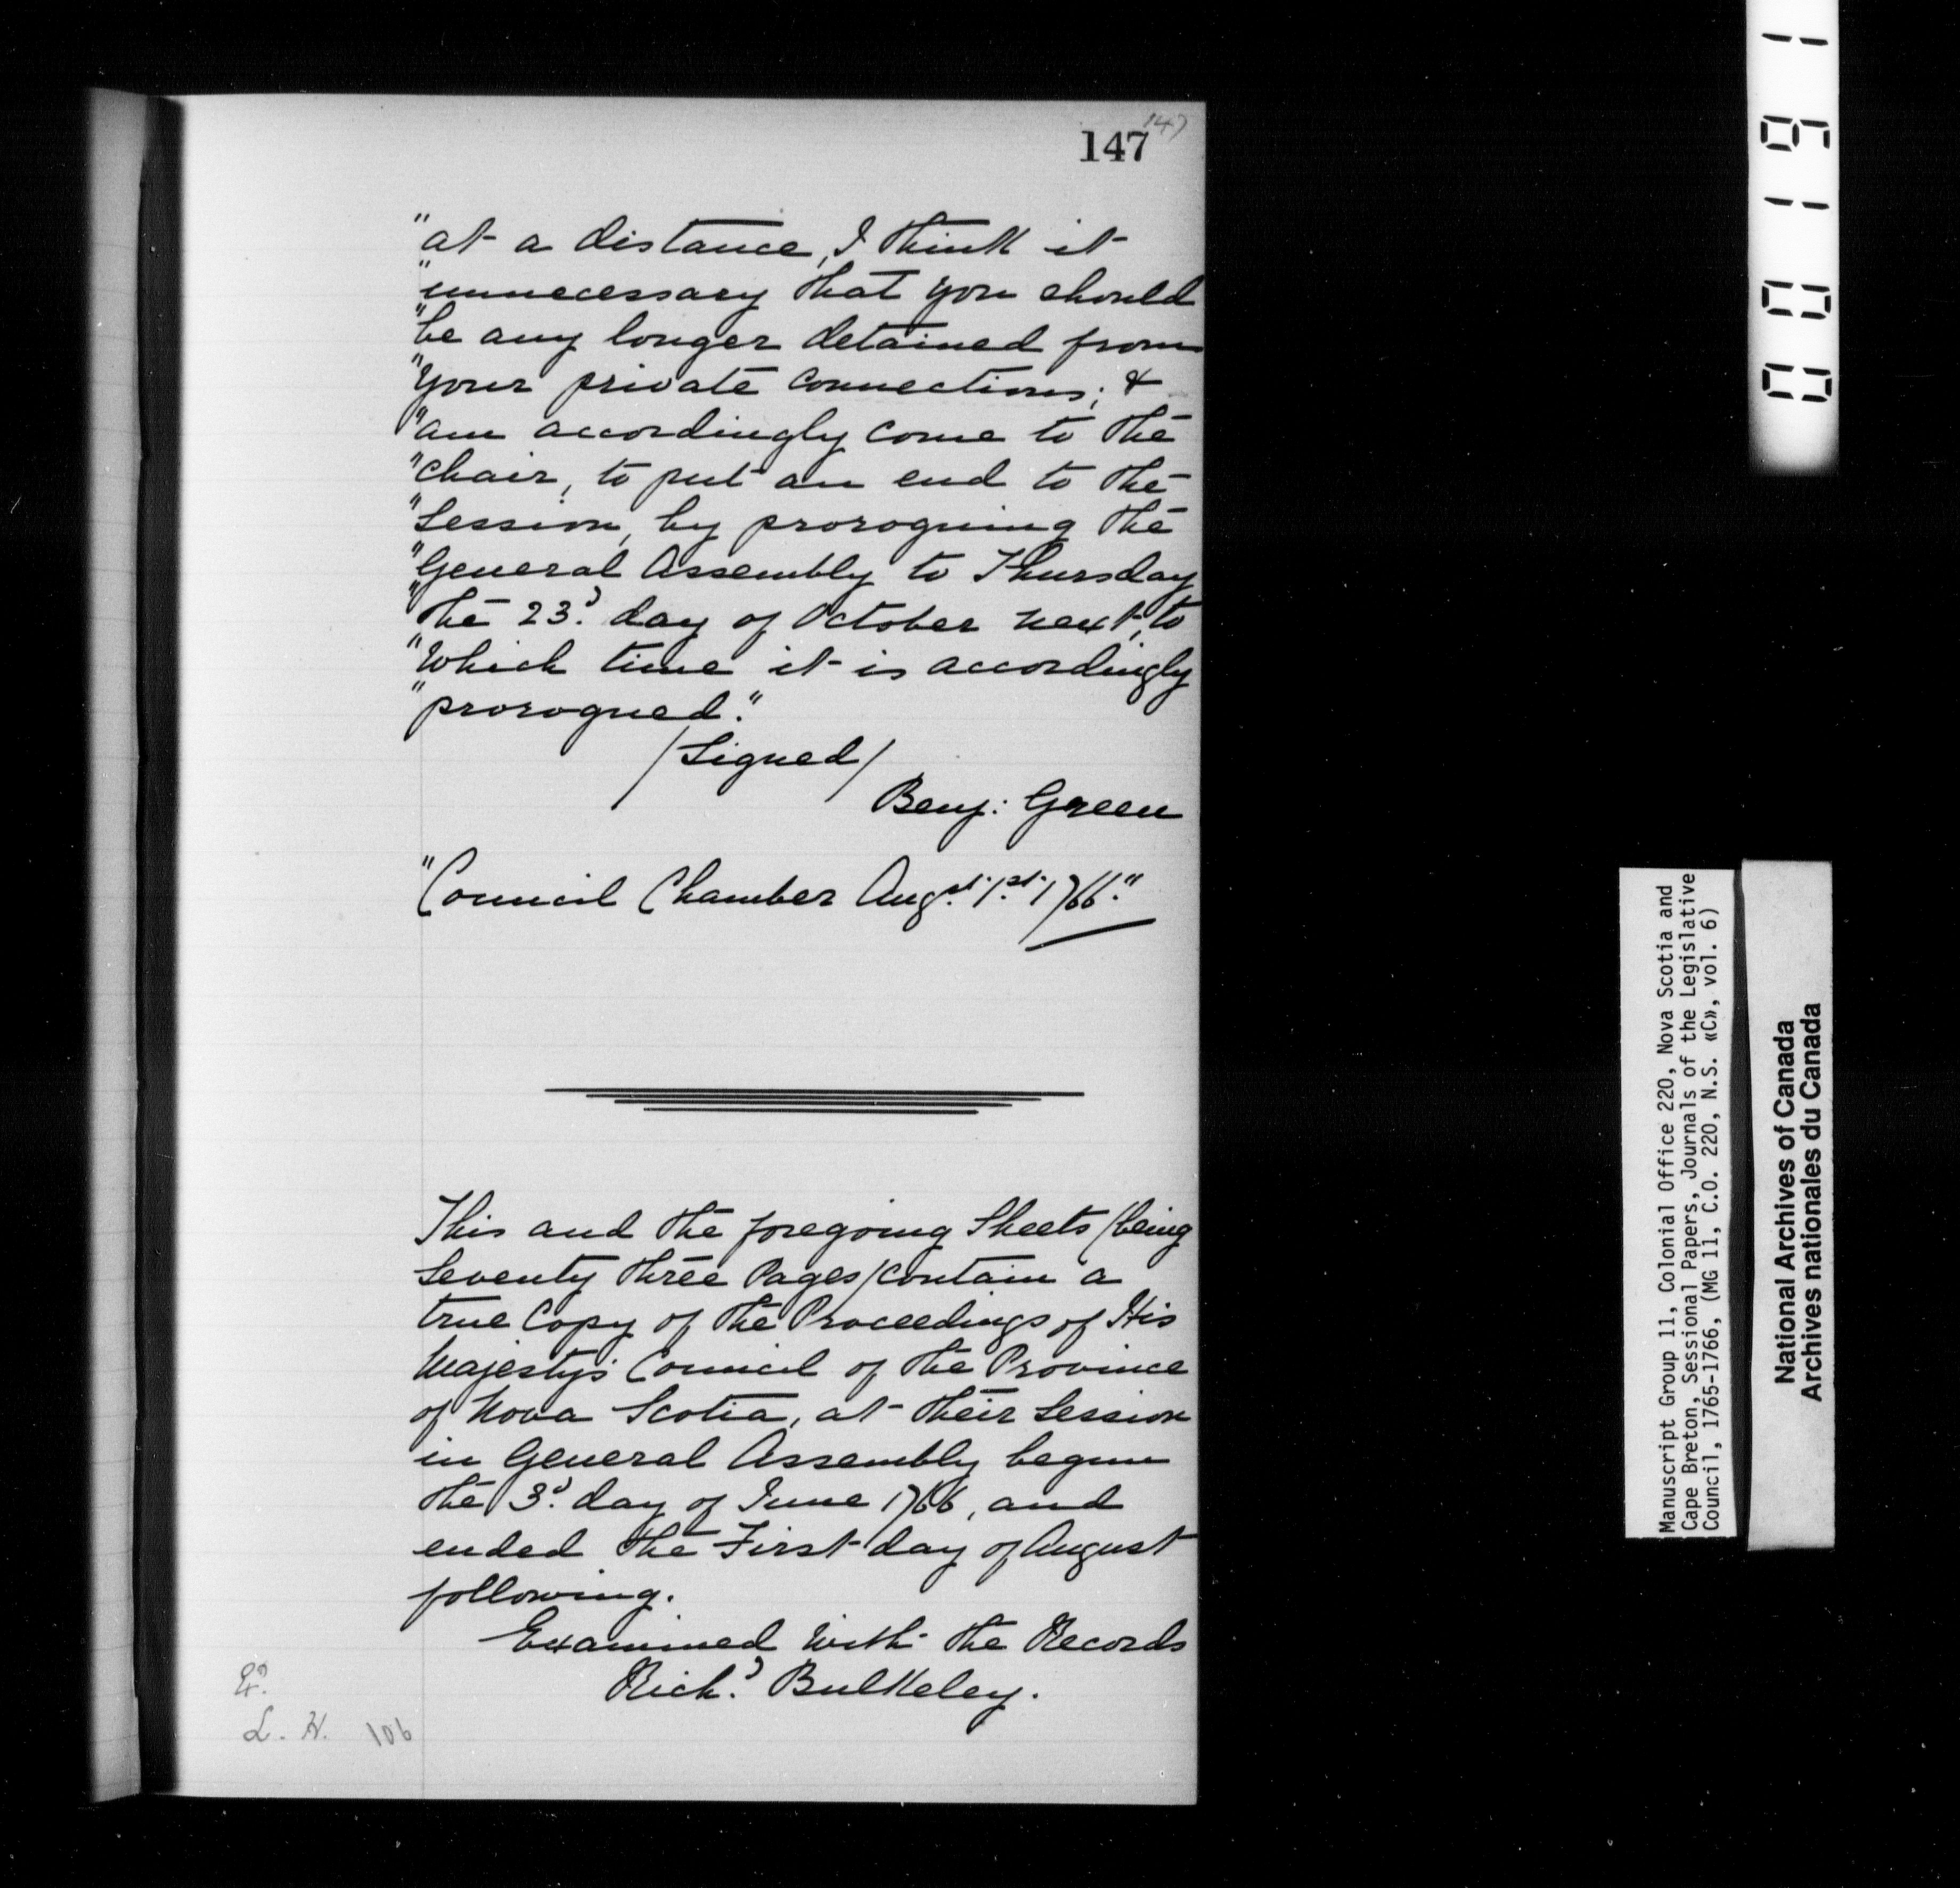 147
147
"at a distance, I think it
"unnecessary that you should
"be any longer detained from
"your private connections; &
"am accordingly come to the
"chair, to put an end to the
"Session, by proroguing the
"General Assembly to Thursday
"the 23.d day of October next, to
"which time it is accordingly
"prorogued."
/Signed/
Benj: Green
"Council Chamber Aug.st 1.st 1766."
This and the foregoing Sheets /being
Seventy three Pages/ contain a
true Copy of the Proceedings of His
Majesty's Council of the Province
of Nova Scotia, at their Session
in General Assembly begun
the 3.d day of June 1766, and
ended the First day of August
following.
Examined with the Records
Rich.d Bulkeley.
L. H. 106
00191
Manuscript Group 11, Colonial Office 220, Nova Scotia and
Cape Breton, Sessional Papers, Journals of the Legislative
Council, 1765-1766, (MG 11, C.O. 220, N.S. «C», vol. 6)
National Archives of Canada
Archives nationales du Canada